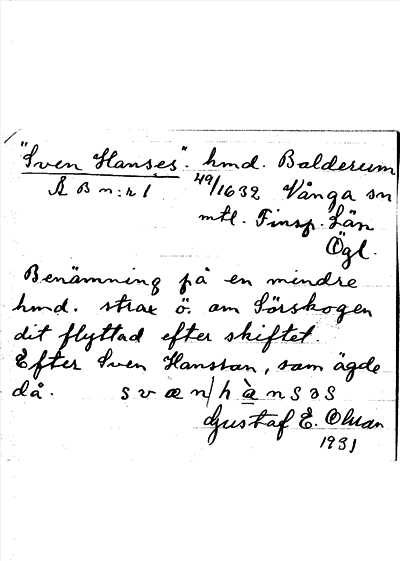 "Sven Hanses". hmd. Balderum
Å B n:r 1 49/1632 Vånga sn
mtl. Finsp. Län
Ögl.
Benämning på en mindre
hmd. strax ö. om Sörskogen
dit flyttad efter skiftet.
Efter Sven Hansson, som ägde
då. svæn/hànsəs
Gustaf E. Olsson
1931